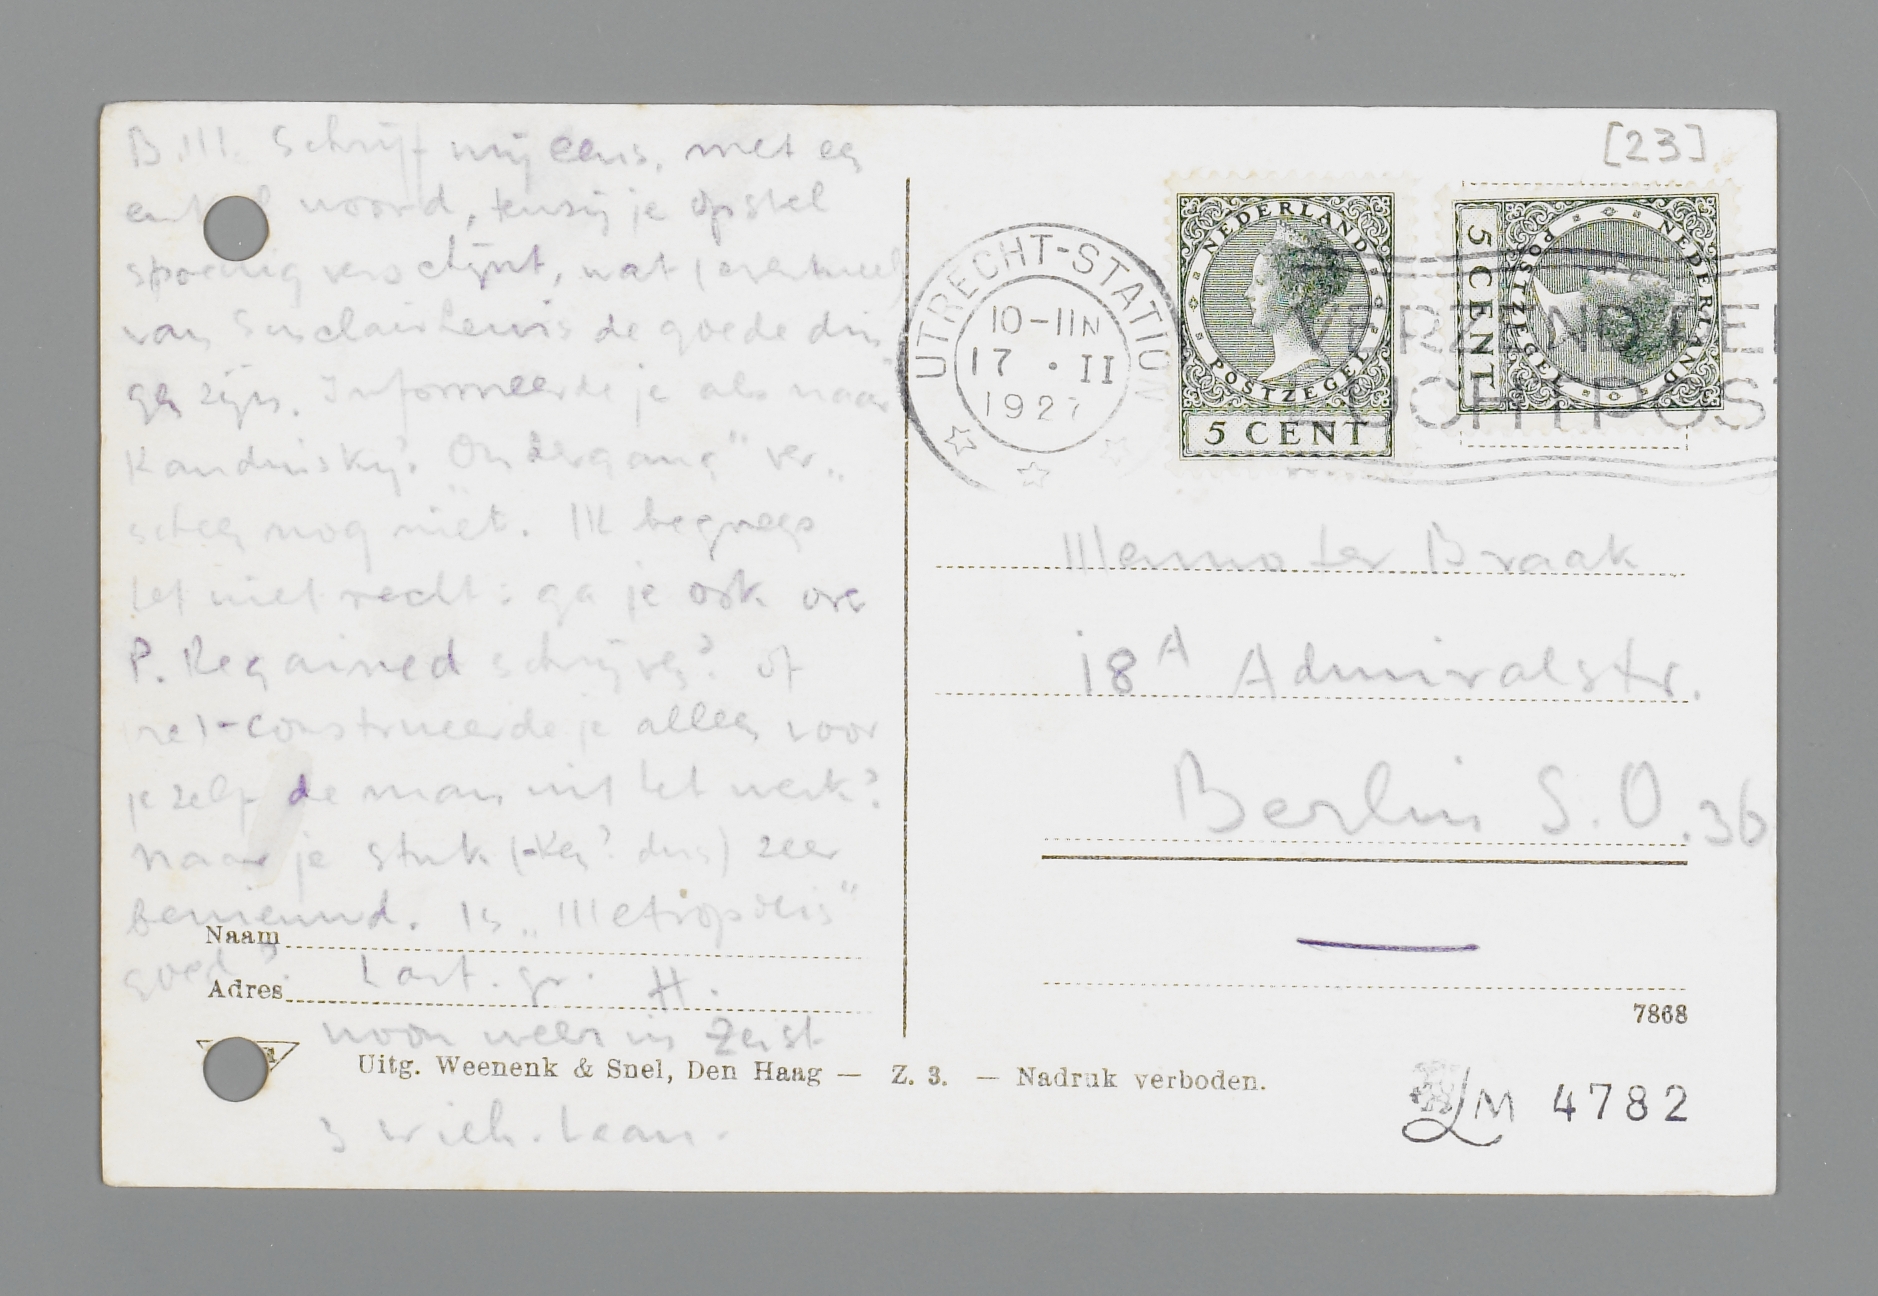 B.M. Schrijf mij eens, met een
enkel woord, tenzij je opstel
spoedig verschijnt, wat (eventueel)
van Sinclair Lewis de goede din-
gen zijn. Informeerde je als naar
Kandinsky? "Ondergang" ver-
scheen nog niet. Ik begreep
het niet recht: ga je ook over
P. Regained schrijven? of
(re)-construeerde je alleen voor
je zelf de man uit het werk?
Naar je stuk (-ken? dus) zeer
benieuwd. Is „Metropolis"
goed? Hart. gr. H.
woon weer in Zeist
3 Wich. laan.
[23]
UTRECHT-STATION
10-11N
17 · II
1927
NEDERLAND
POSTZEGEL
5 CENT
NEDERLAND
POSTZEGEL
5 CENT
VERZEND PER
LUCHTPOST
Menno ter Braak
18A Admiralstr.
Berlin S.O. 36
Naam
Adres
7868
Uitg. Weenenk & Snel, Den Haag — Z. 3. — Nadruk verboden.
LM 4782